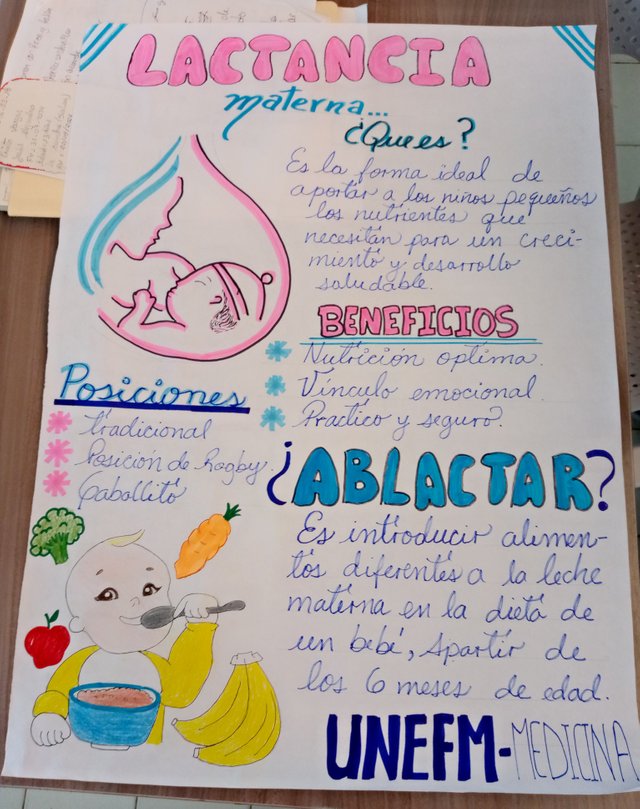 LACTANCIA
materna...
¿Que es?
Es la forma ideal de
aportar a los niños pequeños
los nutrientes que
necesitan para un creci-
miento y desarrollo
saludable.
BENEFICIOS
Nutrición optima.
Vínculo emocional.
Practico y seguro.
Posiciones
tradicional
Posición de Rogby.
Caballito
¿ABLACTAR?
Es introducir alimen-
tos diferentes a la leche
materna en la dieta de
un bebé, Apartir de
los 6 meses de edad.
UNEFM-MEDICINA